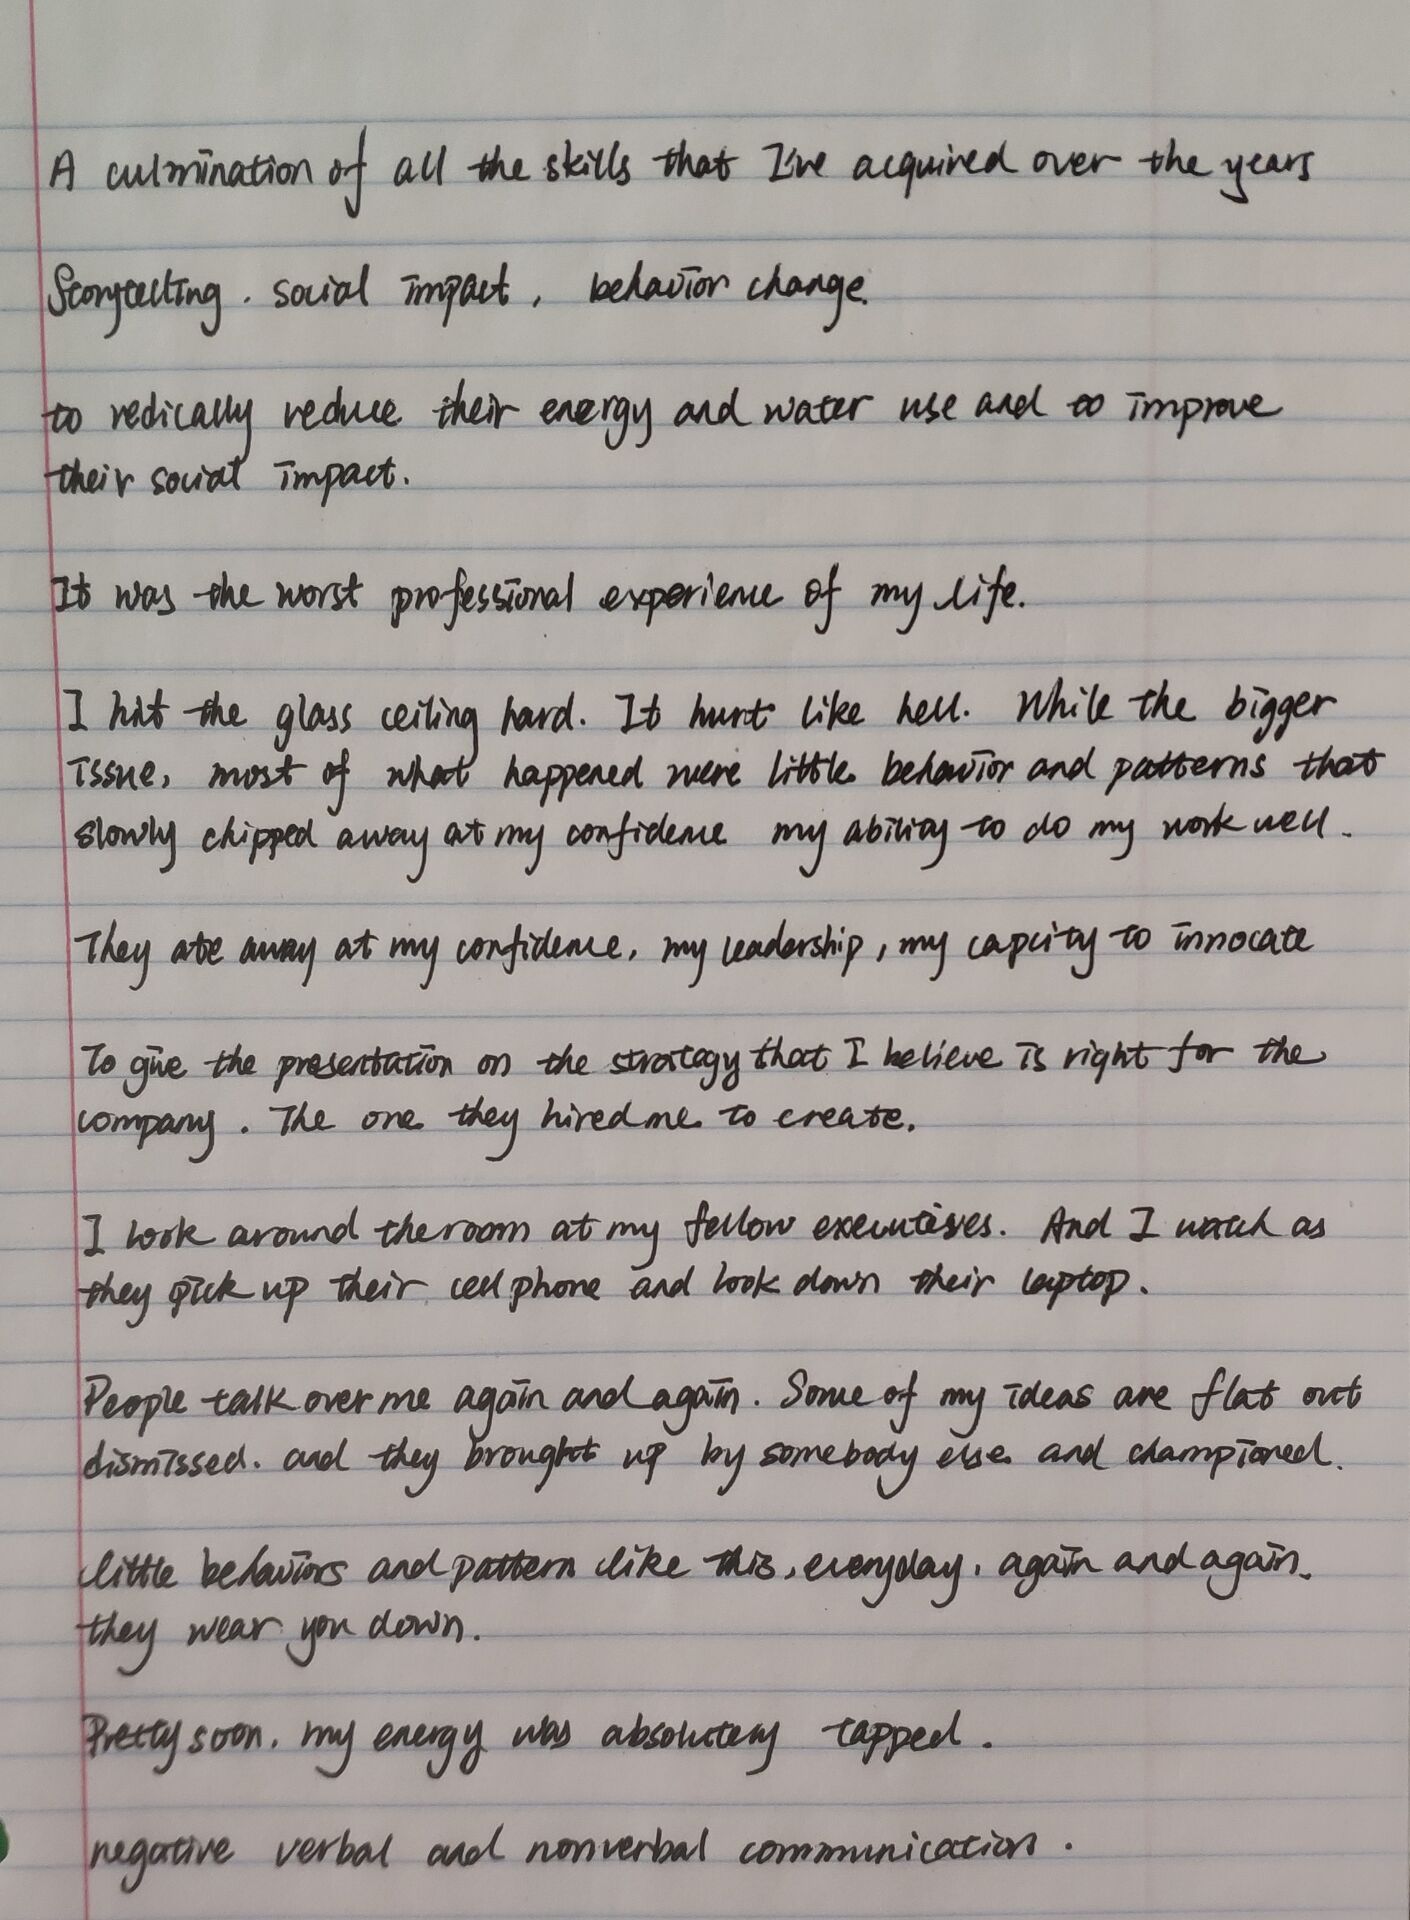 A culmination of all the skills that I've acquired over the years
Storytelling. social impact, behavior change.
to redically reduce their energy and water use and to improve
their social impact.
It was the worst professional experience of my life.
I hit the glass ceiling hard. It hurt like hell. While the bigger
issue, most of what happened were little behavior and patterns that
slowly chipped away at my confidence my ability to do my work well.
They ate away at my confidence, my leadership, my capcity to innocate
To give the presentation on the strategy that I believe is right for the
company. The one they hired me to create.
I look around the room at my fellow executives. And I watch as
they pick up their cell phone and look down their laptop.
People talk over me again and again. Some of my ideas are flat out
dismissed. and they brought up by somebody else and championed.
little behaviors and pattern like this, everyday, again and again.
they wear you down.
Pretty soon, my energy was absolutely tapped.
negative verbal and nonverbal communication.